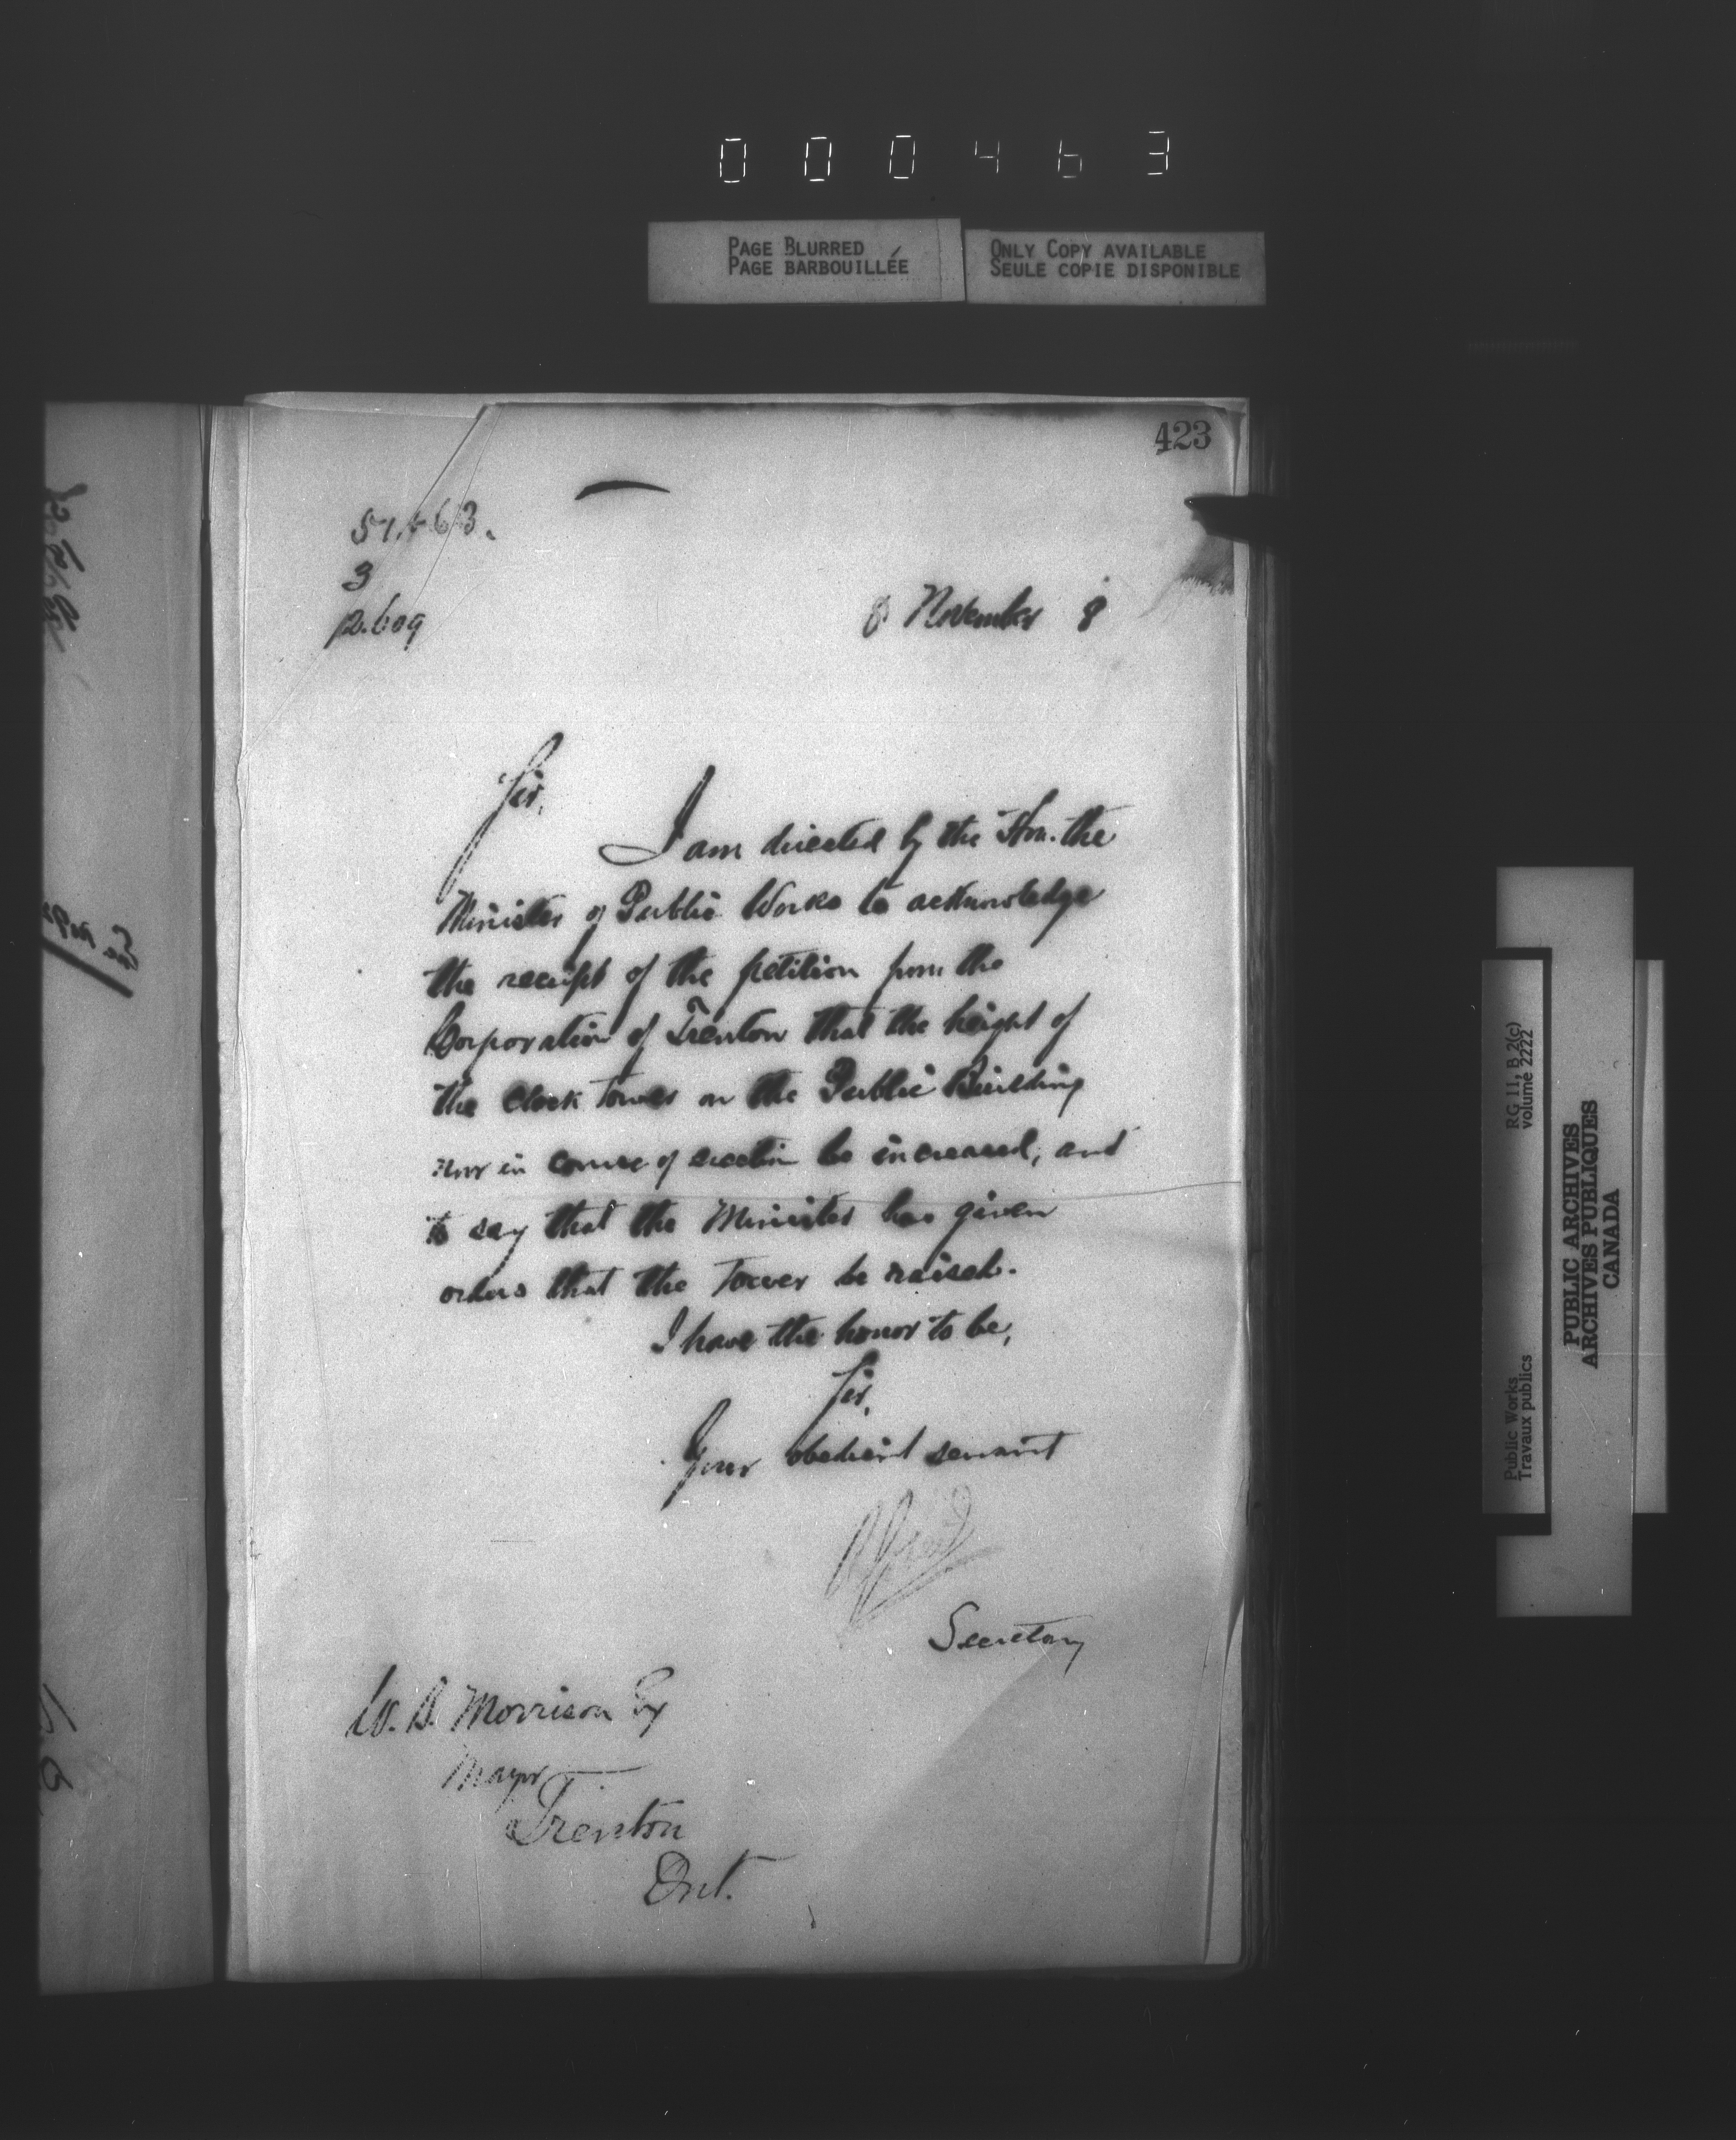 000463
PAGE BLURRED
PAGE BARBOUILLÉE
ONLY COPY AVAILABLE
SEULE COPIE DISPONIBLE
423
3
p.609
8 November 8
Sir,
I am directed by the Hon. the
Minister of Public Works to acknowledge
the receipt of the petition from the
Corporation of Trenton that the height of
the clock tower on the Public Building
now in course of erection be increased, and
to say that the Minister has given
orders that the Tower be raised.
I have the honor to be,
Sir,
Your obedient servant
Secretary
W. B. Morrison Esq
Mayor
Trenton
Ont.
RG 11, B 2(c)
volume 2222
Public Works
Travaux publics
PUBLIC ARCHIVES
ARCHIVES PUBLIQUES
CANADA